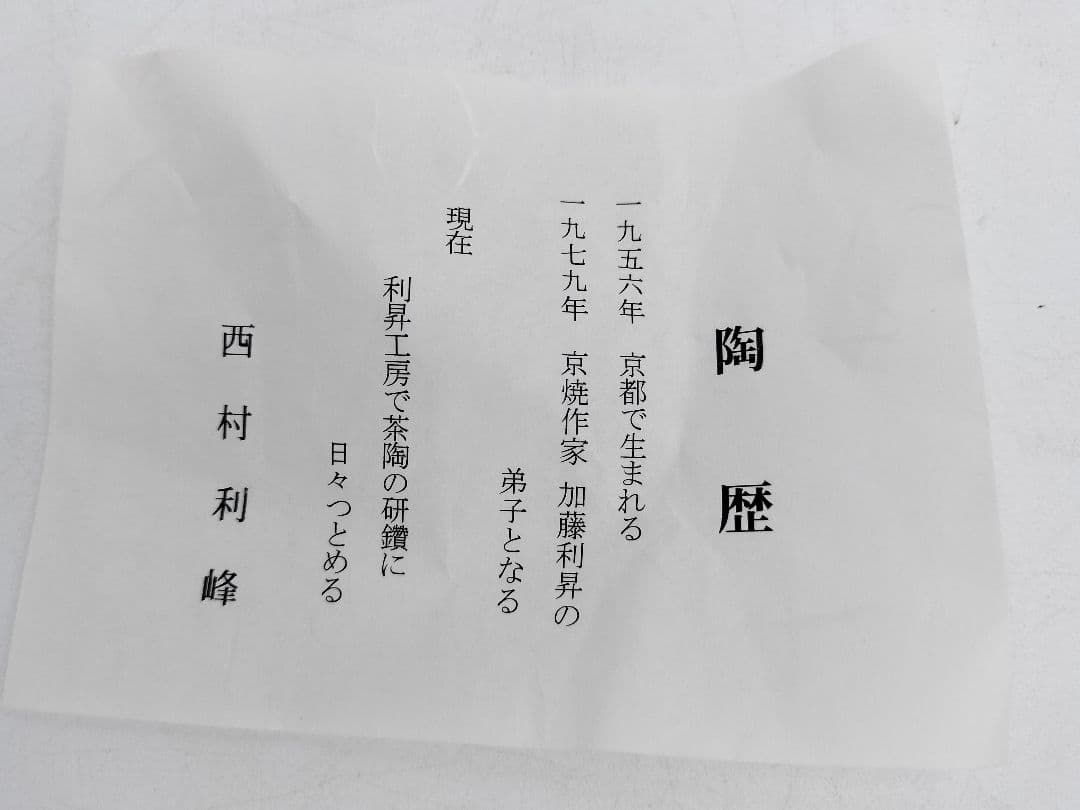 陶歴
一九五六年 京都で生まれる
一九七九年 京焼作家 加藤利昇の
弟子となる
現在
利昇工房で茶陶の研鑽に
日々つとめる
西村利峰